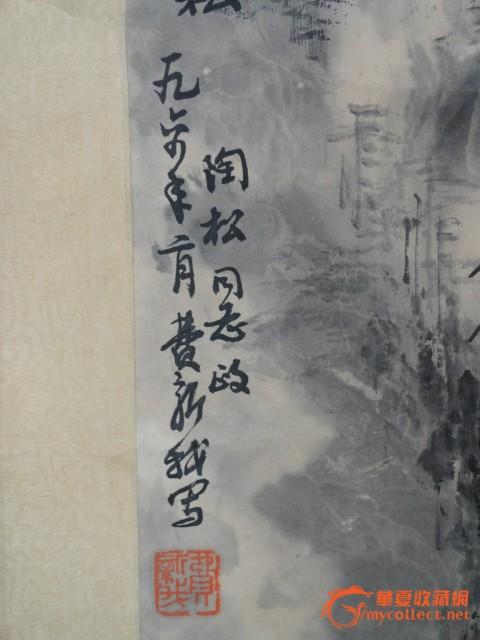 松
陶松同志政
九六年二月費新我写
費新我
華夏收藏網
mycollect.net